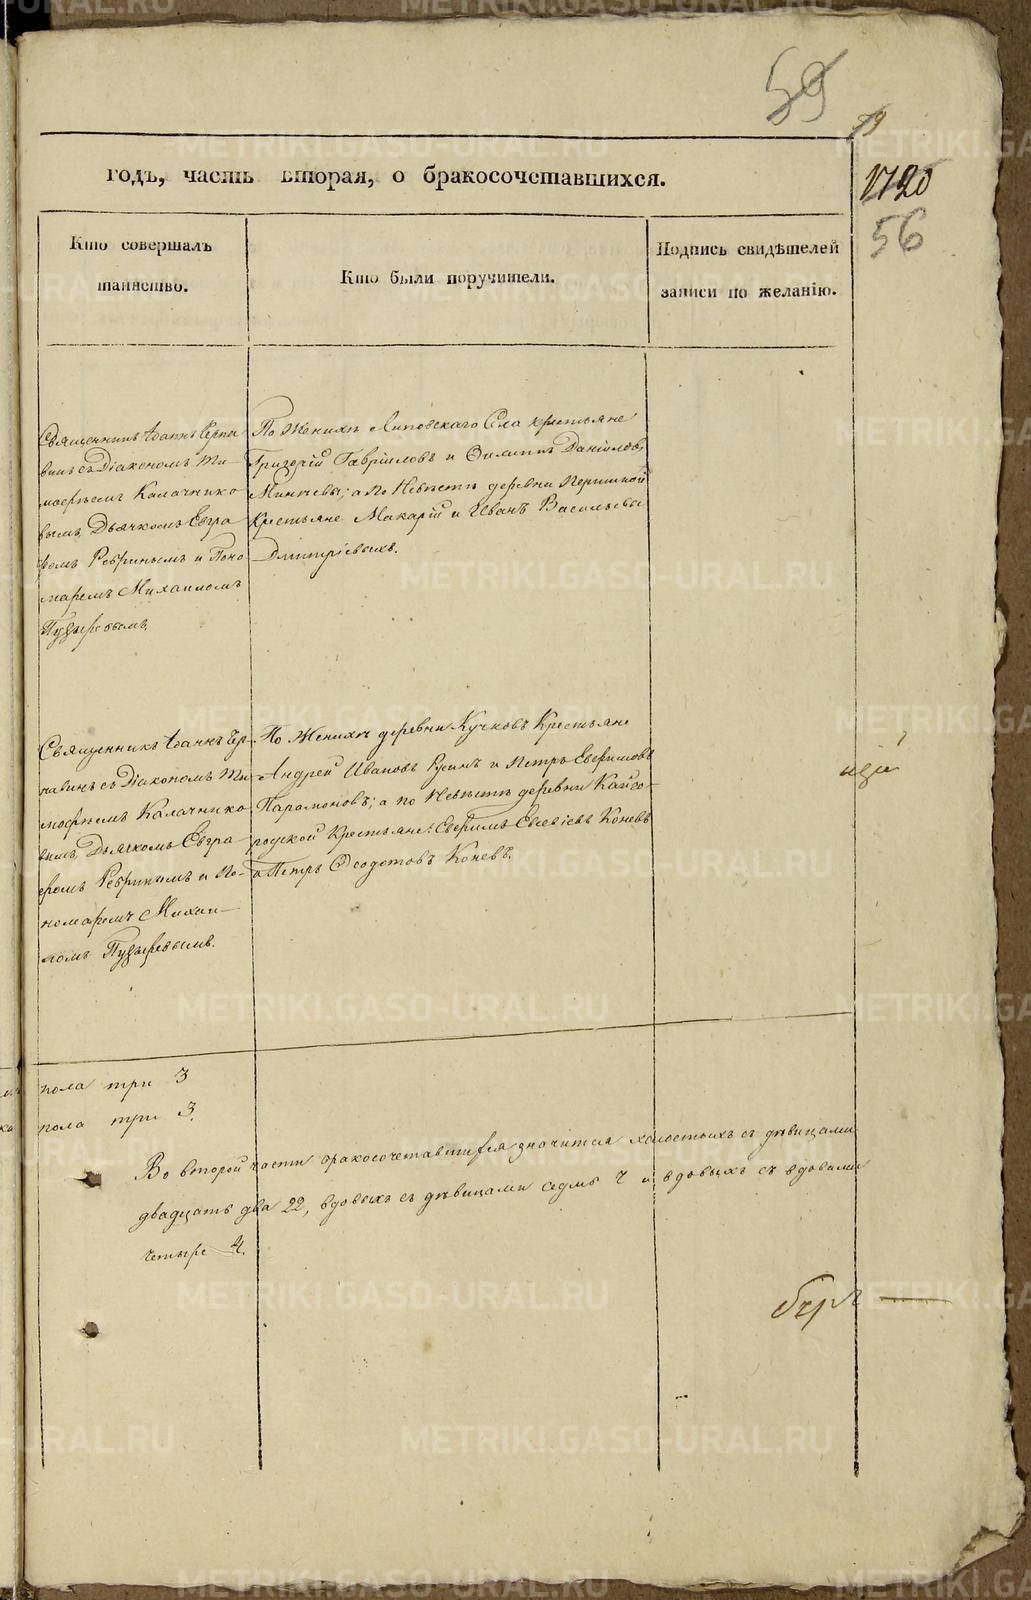 59
79
годъ, часть вторая, о бракосочетавшихся.
1720
56
Кто совершалъ
таинство.
Кто были поручители.
Подпись свидѣтелей
записи по желанію.
Священникъ Іоаннъ Черна
винъ съ Діакономъ Ти-
мофѣемъ Калачнико
вымъ, Дьячкомъ Евгра
фомъ Ребринымъ и Поно
маремъ Михаиломъ
Пузыревымъ.
По Женихѣ Липовскаго Села крестьяне
Григорій Гавріиловъ и Филиппъ Даніиловъ
Минѣевы; а по Невѣстѣ деревни
Крестьяне Макарій и Иванъ Васильевы
Дмитріевыхъ.
Священникъ Іоаннъ Чер-
навинъ съ Діакономъ Ти-
мофѣемъ Калачнико
вымъ, Дьячкомъ Евгра
фомъ Ребринымъ и По-
номаремъ Михаи-
ломъ Пузыревымъ.
По Женихѣ деревни Кучковъ Крестьяне
Андрей Ивановъ Русинъ и Петръ Ефримовъ
Парамоновъ; а по Невѣстѣ деревни Кайго-
родской Крестьяне: Ефримъ Евсевіевъ Коневъ
и Петръ Ѳеодотовъ Коневъ.
пола три 3
пола три 3.
Во второй части бракосочетавшихся значится холостыхъ съ дѣвицами
двадцать два 22, вдовыхъ съ дѣвицами седмь 7 и вдовыхъ съ вдовами
четыре 4.
METRIKI.GASO-URAL.RU